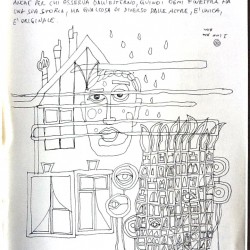 ANCHE PER CHI OSSERVA DALL'ESTERNO, QUINDI OGNI FINESTRA HA
UNA SUA STORIA, HA QUALCOSA DI DIVERSO DALLE ALTRE, E' UNICA,
E' ORIGINALE